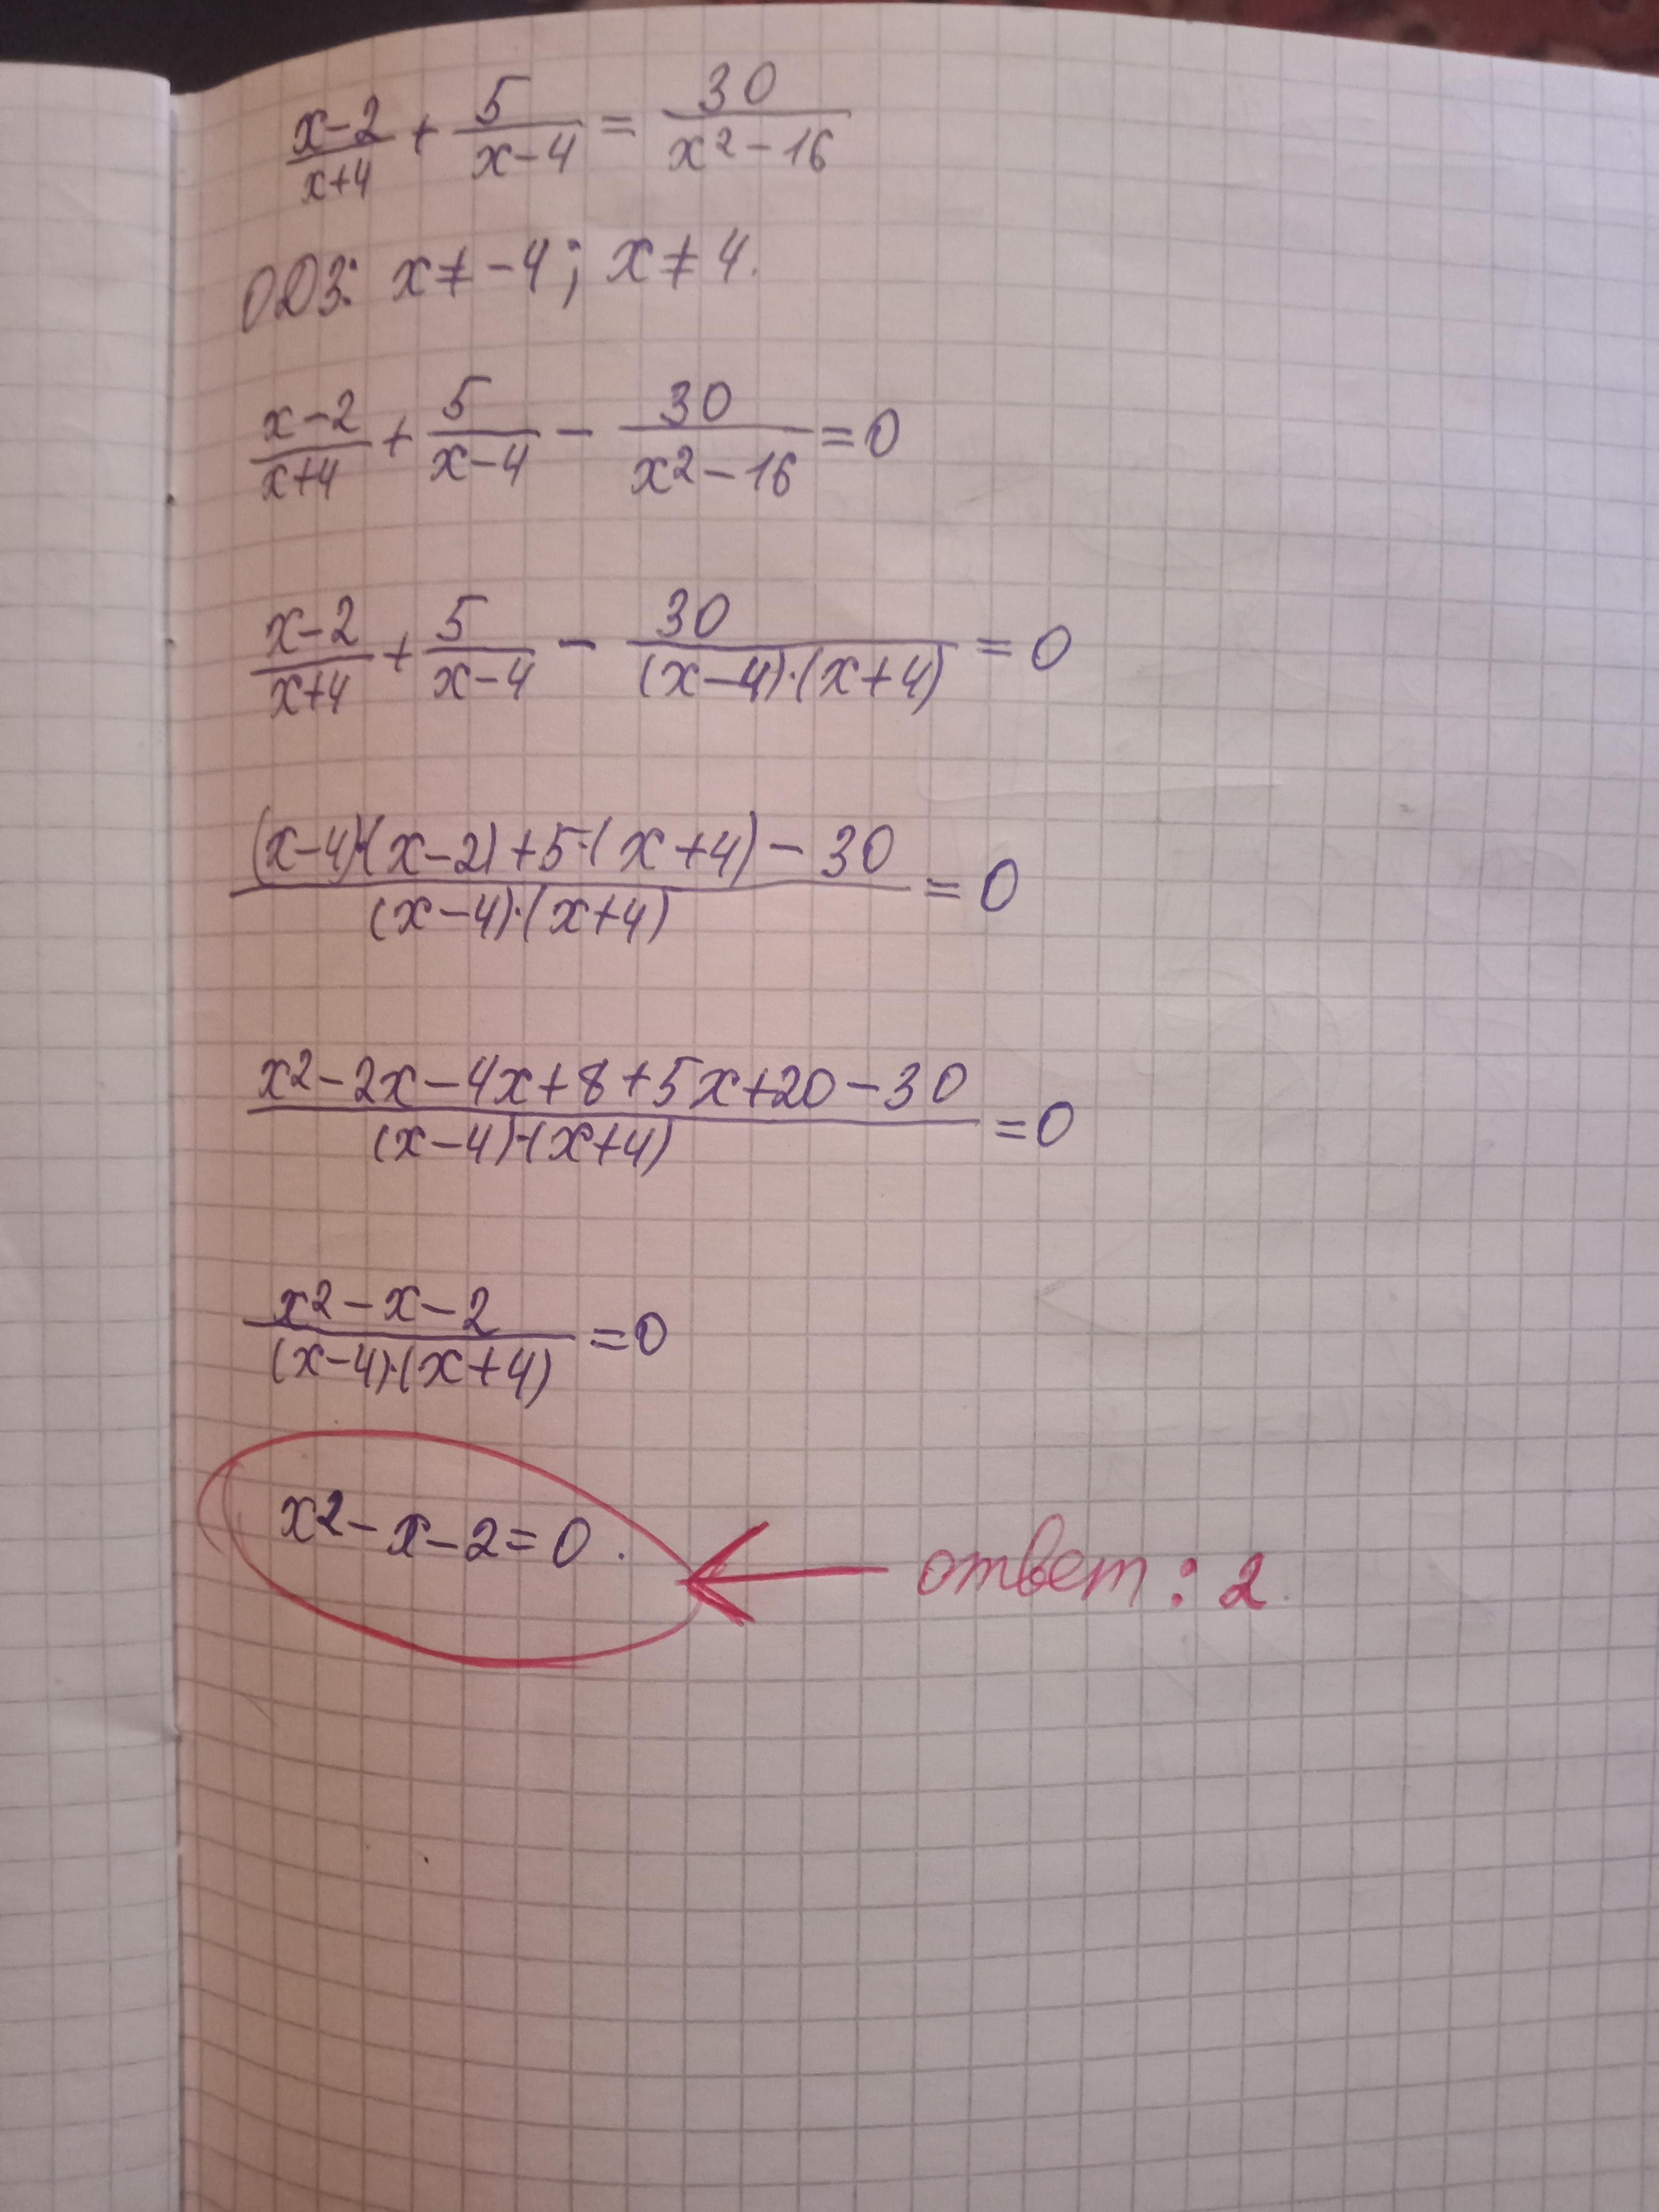 x-2/x+4 + 5/x-4 = 30/x²-16
ОДЗ: x≠-4; x≠4.
x-2/x+4 + 5/x-4 - 30/x²-16 = 0
x-2/x+4 + 5/x-4 - 30/(x-4)·(x+4) = 0
(x-4)·(x-2)+5·(x+4)-30/(x-4)·(x+4) = 0
x²-2x-4x+8+5x+20-30/(x-4)·(x+4) = 0
x²-x-2/(x-4)·(x+4) = 0
x²-x-2=0. ← ответ: 2.